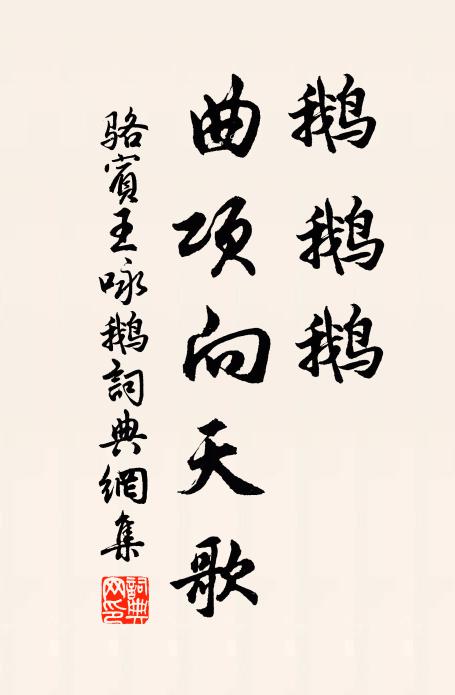 鹅鹅鹅
曲项向天歌
駱賓王咏鹅詞典網集
詞典
网印